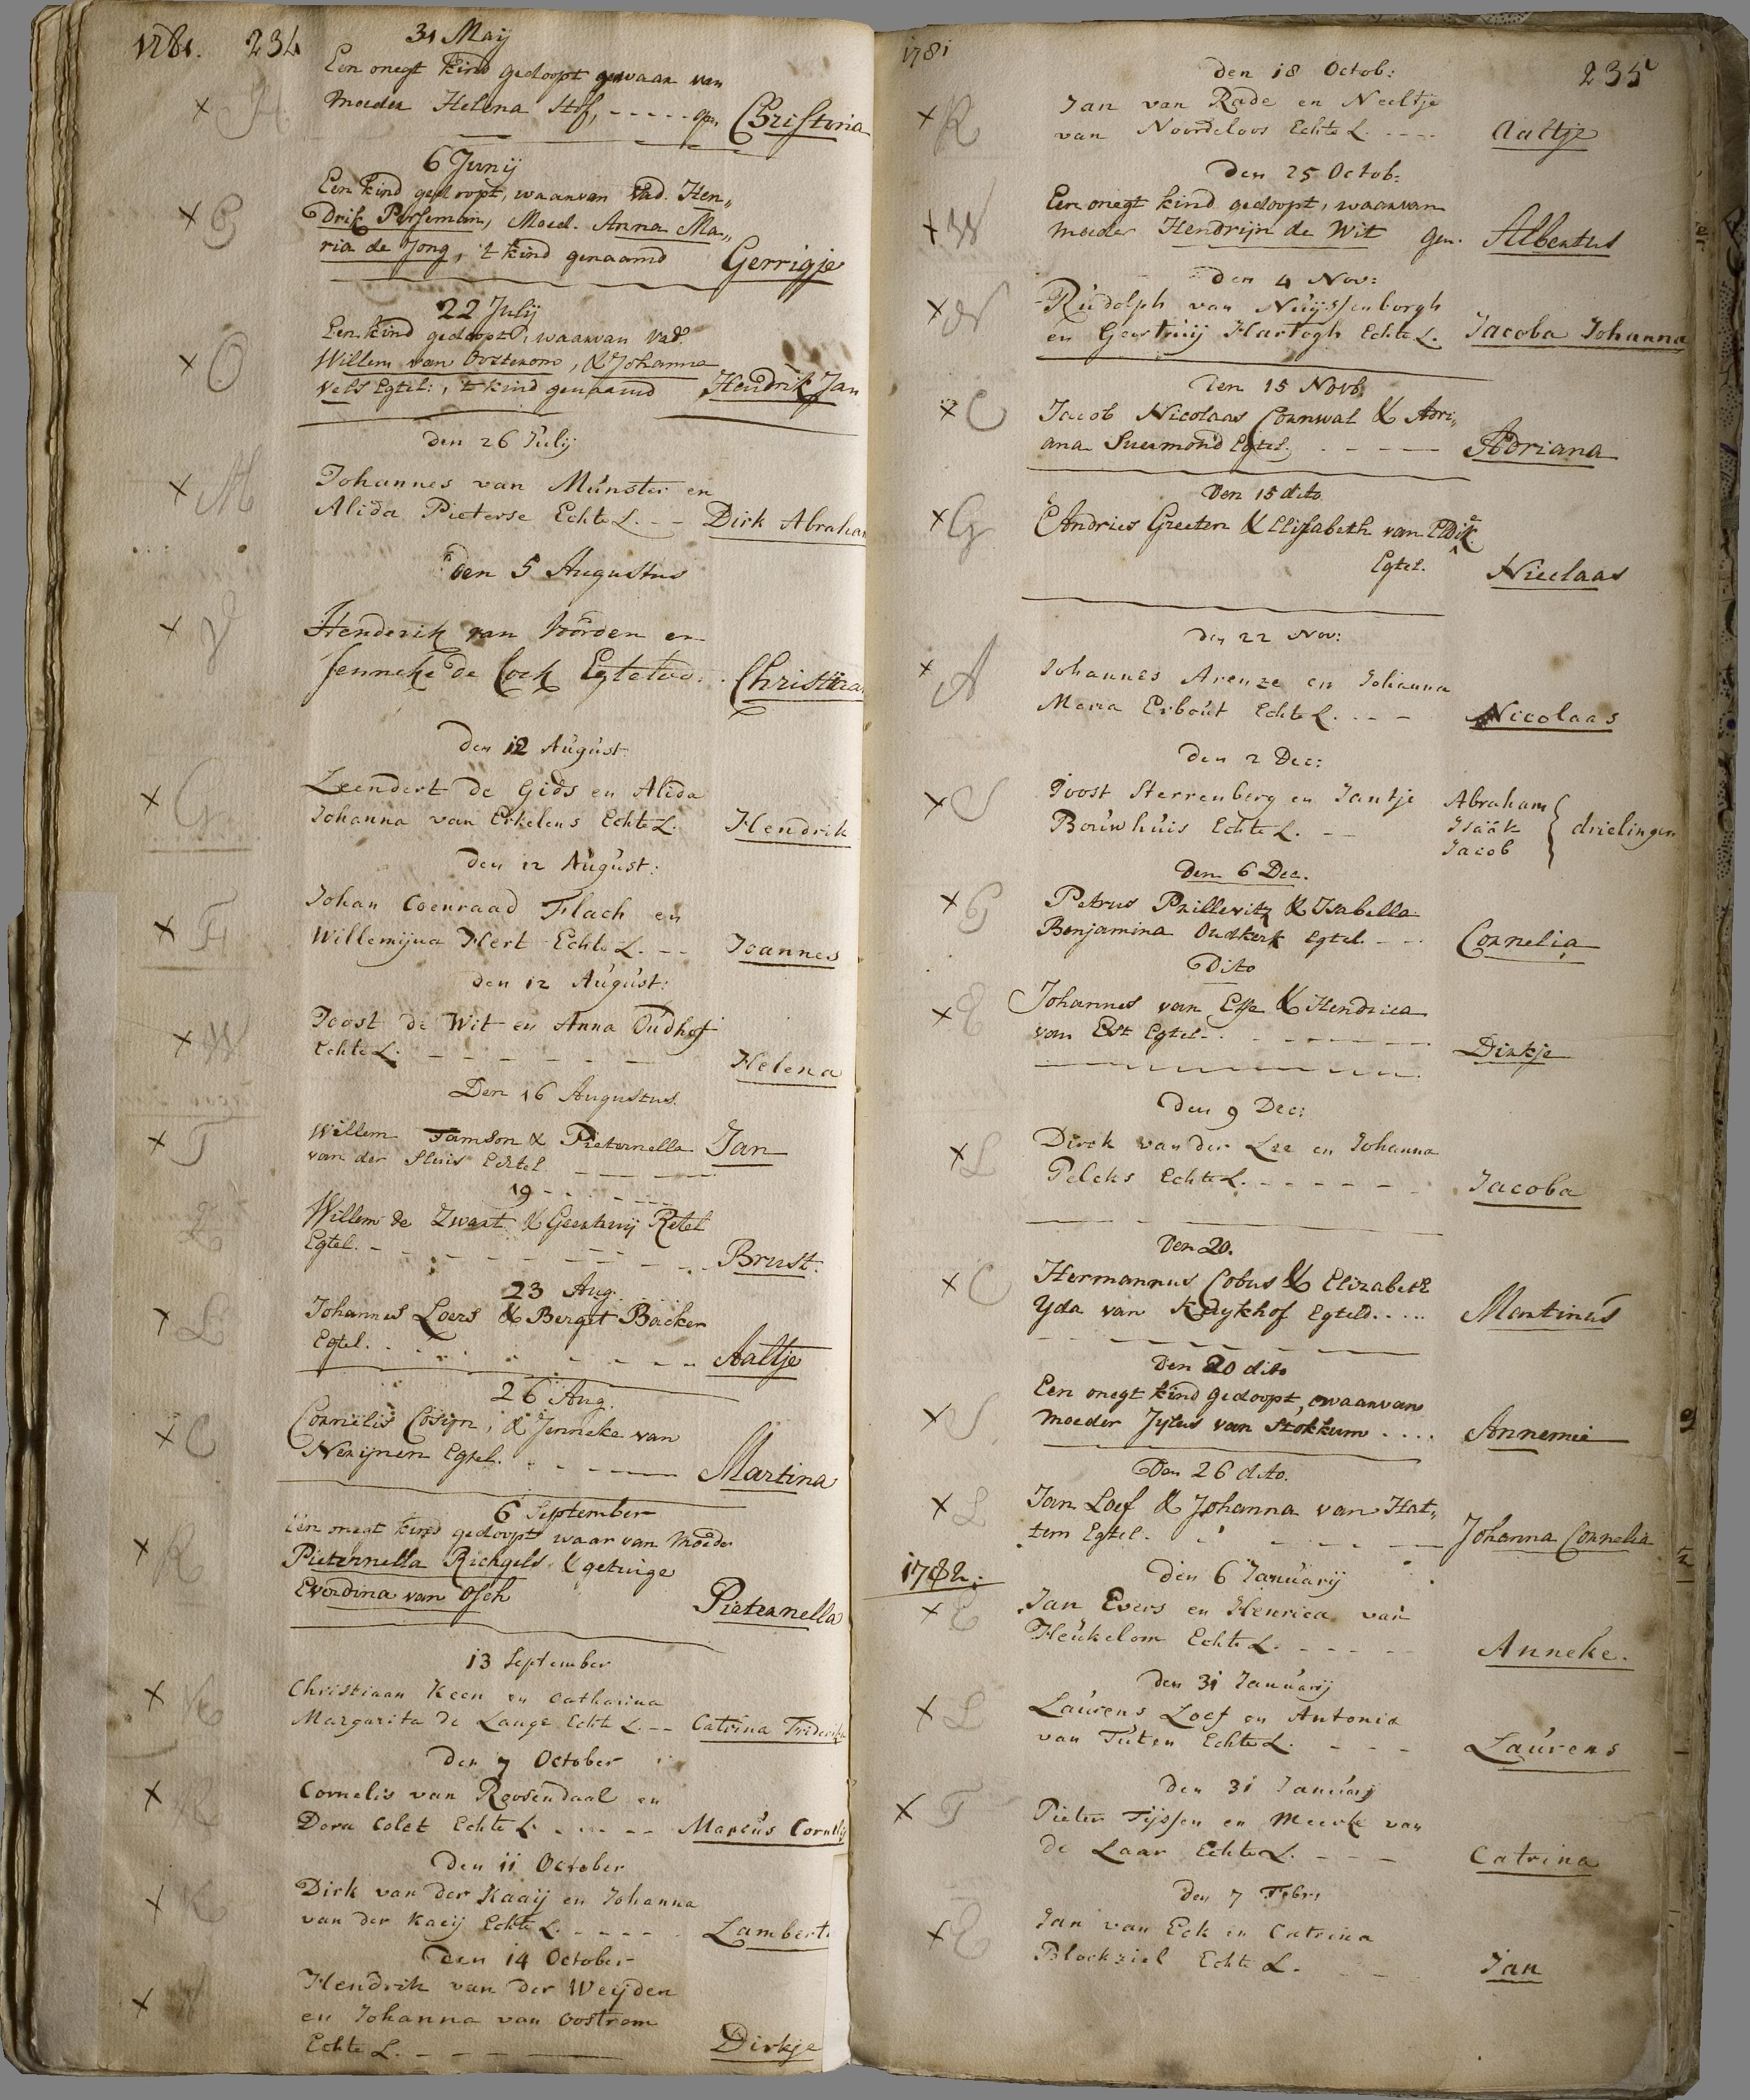 1781. 234
31 Maij
Een onegt kind gedoopt gewaar van
moeder Helena Hof, - - - - - gen. Christina
6 Junij
Een kind gedoopt, waarvan Vad. Hen„
drik Posseman, Moed. Anna Ma„
ria de Jong, 't kind genaamd Gerrigje
22 Julij
Een kind gedoopt, waarvan Vad.
Willem van Oosterom, & Johanna
Vels Egtel:, 't kind genaamd Hendrik Jan
den 26 Julij
Johannes van Munster en
Alida Pieterse Echte L. - - Dirk Abraham
den 5 Augustus
Henderik van Vorden en
Jenneke de Cock Christina
den 12 August
Leendert de Gids en Alida
Johanna van Erkelens Echte L. Hendrik
den 12 August:
Johan Coenraad Flach en
Willemijna Hert Echte L. - - Joannes
den 12 August:
Joost de Wit en Anna Oudhof
Echte L. - - - - - - Helena
Den 16 Augustus.
Willem Tamson & Pieternella Jan
van der Sluis Echtel.
19 - - - - -
Willem de Zwart & Geertruij Retel
Egtel. - - - - - - - - Brust.
23 Aug.
Johannes Loers & Bergit Backer
Egtel. - - - - - - - Aaltje
26 Aug.
Cornelis Cosijn, & Jenneke van
Nerijnen Egtel. - - - - Martina
6 September
Een onegt kind gedoopt waar van moeder
Pieternella Richgels & getuige
Everdina van Osch Pieternella
13 September
Christiaan Keen en Catharina
Margarita de Lange Echte L. - - Catrina Friderika
Den 7 October
Cornelis van Roosendaal en
Dora Colet Echte L. - - - - - Marcus Cornelis
Den 11 October
Dirk van der Kaaij en Johanna
van der Kaeij Echte L. - - - - Lambert
den 14 October
Hendrik van der Weijden
en Johanna van Oostrom
Echte L. - - - Dirkje
1781 235
den 18 Octob:
Jan van Rade en Neeltje
van Noordeloos Echte L. - - - - Aaltje
den 25 Octob:
Een onegt kind gedoopt, waarvan
moeder Hendrijn de Wit gen. Albertus
den 4 Nov:
Rudolph van Nuijssenborgh
en Geertruij Hartogh Echte L. Jacoba Johanna
den 15 Novb.
Jacob Nicolaas Cornwal & Adri„
ana Suermond Egtel. - - - - Adriana
Den 15 dito
Andries Greeten & Elisabeth van Eldik
Egtel. Nicolaas
den 22 Nov:
Johannes Arenze en Johanna
Maria Erbout Echte L. - - - Nicolaas
den 2 Dec:
Joost Sterrenberg en Jantje Abraham
Bouwhuis Echte L. - - Isaäk drielingen
Jacob
den 6 Dec.
Petrus Prillevitz & Isabella
Benjamina Oudkerk Egtel. - - - Cornelia
Dito
Johannes van Esse & Hendrica
van Est Egtel. - - - - - - Dirkje
den 9 Dec:
Dirck van der Lee en Johanna
Peleks Echte L. - - - - - - Jacoba
Den 20.
Hermannus Cobus & Elizabeth
Yda van Kuykhof Egteld. . . . . Martinus
Den 20 dito
Een onegt kind gedoopt, waarvan
moeder Jytus van Stokkum . . . . Annemie
Den 26 dito.
Jan Loef & Johanna van Hat„
tem Egtel. - - - - - Johanna Cornelia
1782. den 6 Januarij
Jan Evers en Henrica van
Heukelom Echte L. - - - - - Anneke.
den 31 Januarij
Laurens Loef en Antonia
van Tuten Echte L. - - - Laurens
den 31 Januarij
Pieter Tijssen en Meerke van
de Laar Echte L. - - - Catrina
den 7 Febr:
Jan van Eck en Catrina
Blockziel Echte L. - - - Jan